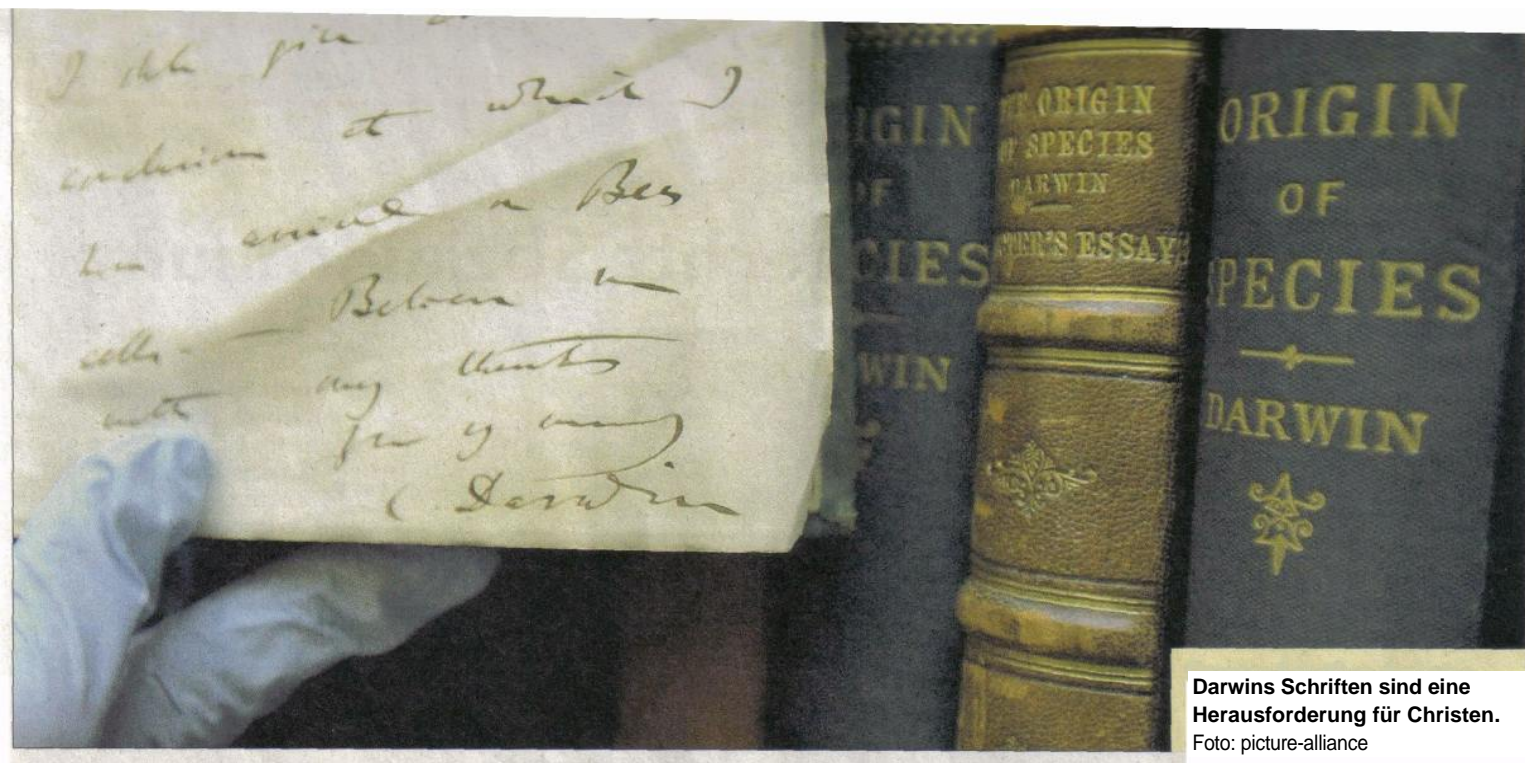 I
conclusion at which I
Bees
cells — Believe me
with my thanks
C Darwin
IGIN
OF
CIES
WIN
ORIGIN
OF SPECIES
DARWIN
ESSAYS
ORIGIN
OF
SPECIES
DARWIN
Darwins Schriften sind eine
Herausforderung für Christen.
Foto: picture-alliance